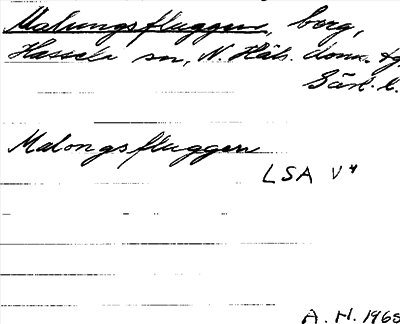 Malungsfluggen, berg,
Hassela sn, N. Häls. doms. tg.
Gävl. l.
Malongsfluggen
LSA V4
A. H. 1965